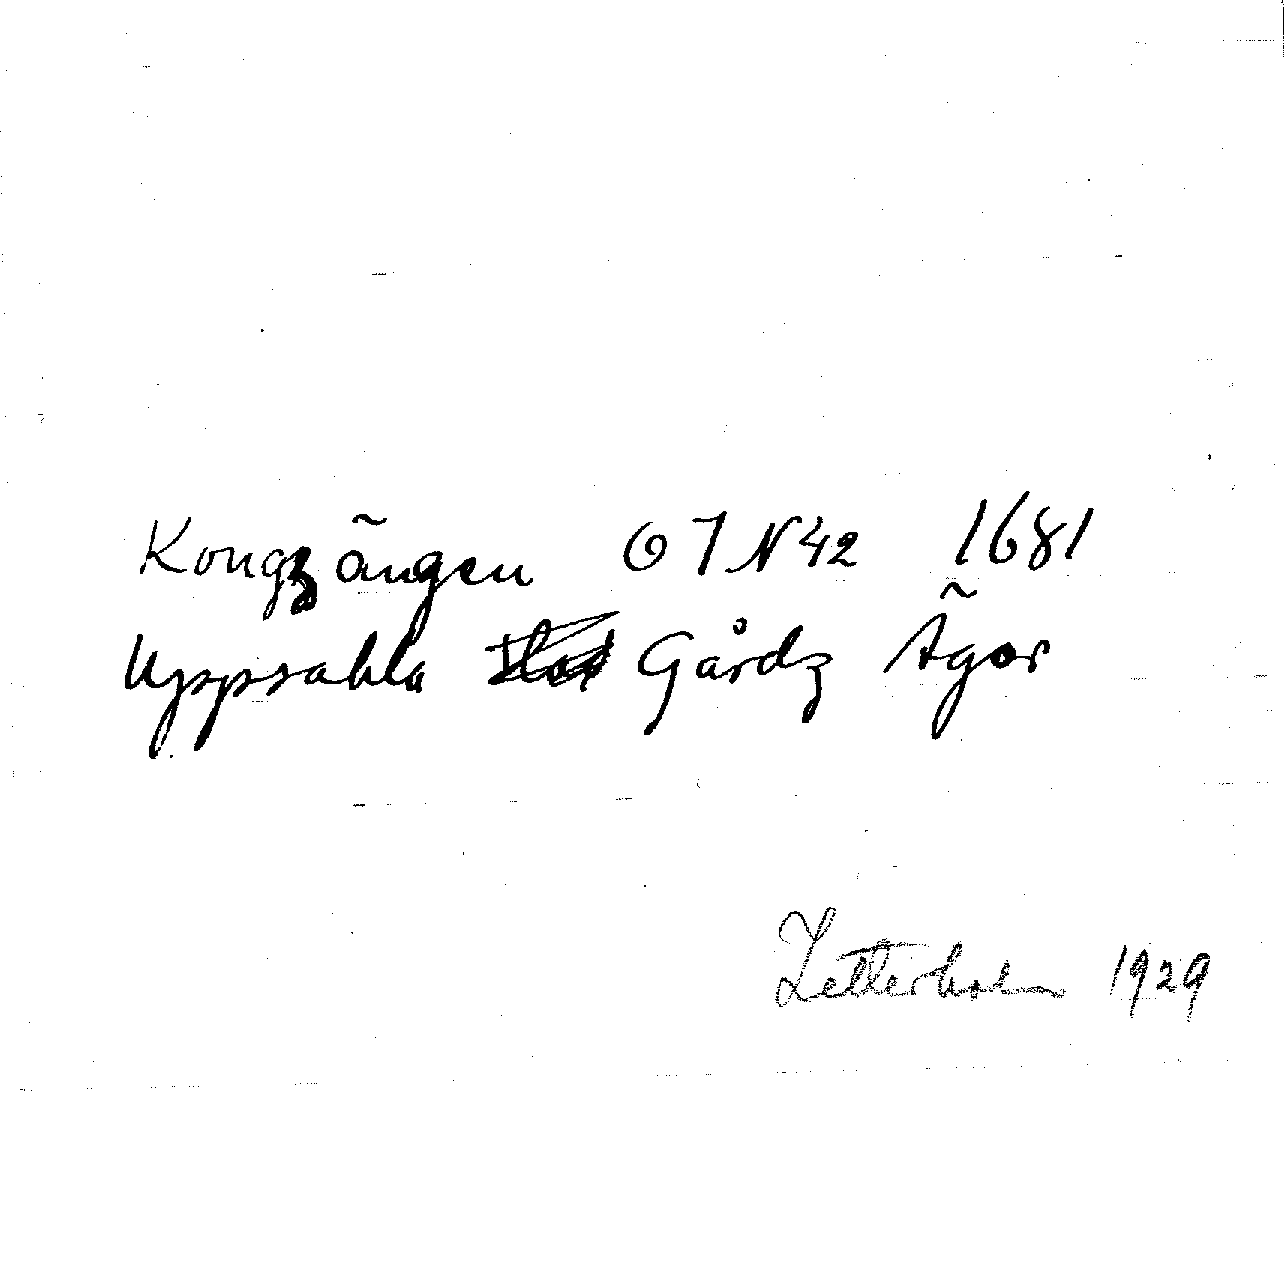 Kongzãngen O7 N42 1681
Uppsahla Gårdz Ãgor
Zetterholm 1929